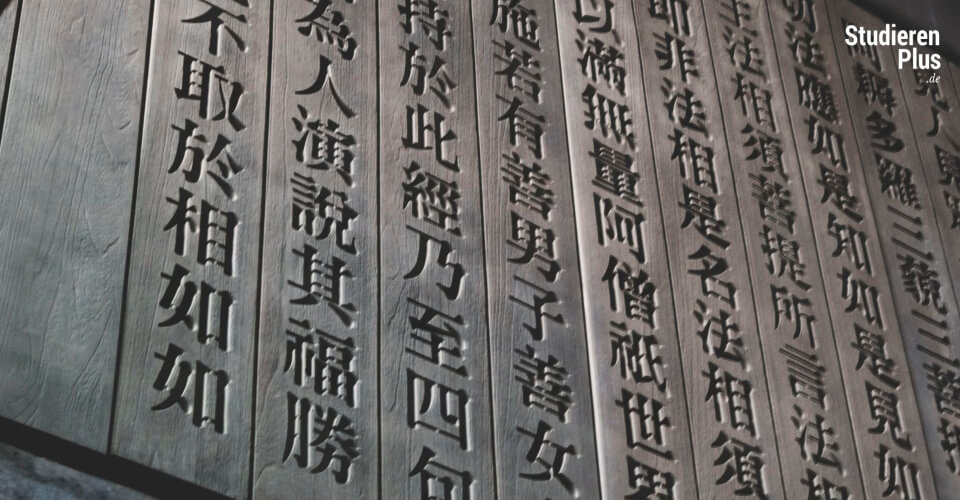 見人見
耨多羅三藐三菩
切法應如是知如是見如
生法相須菩提所言法相
即非法相是名法相須
以滿無量阿僧祇世界
施若有善男子善女
持於此經乃至四句
為人演說其福勝
不取於相如如
Studieren
Plus
.de